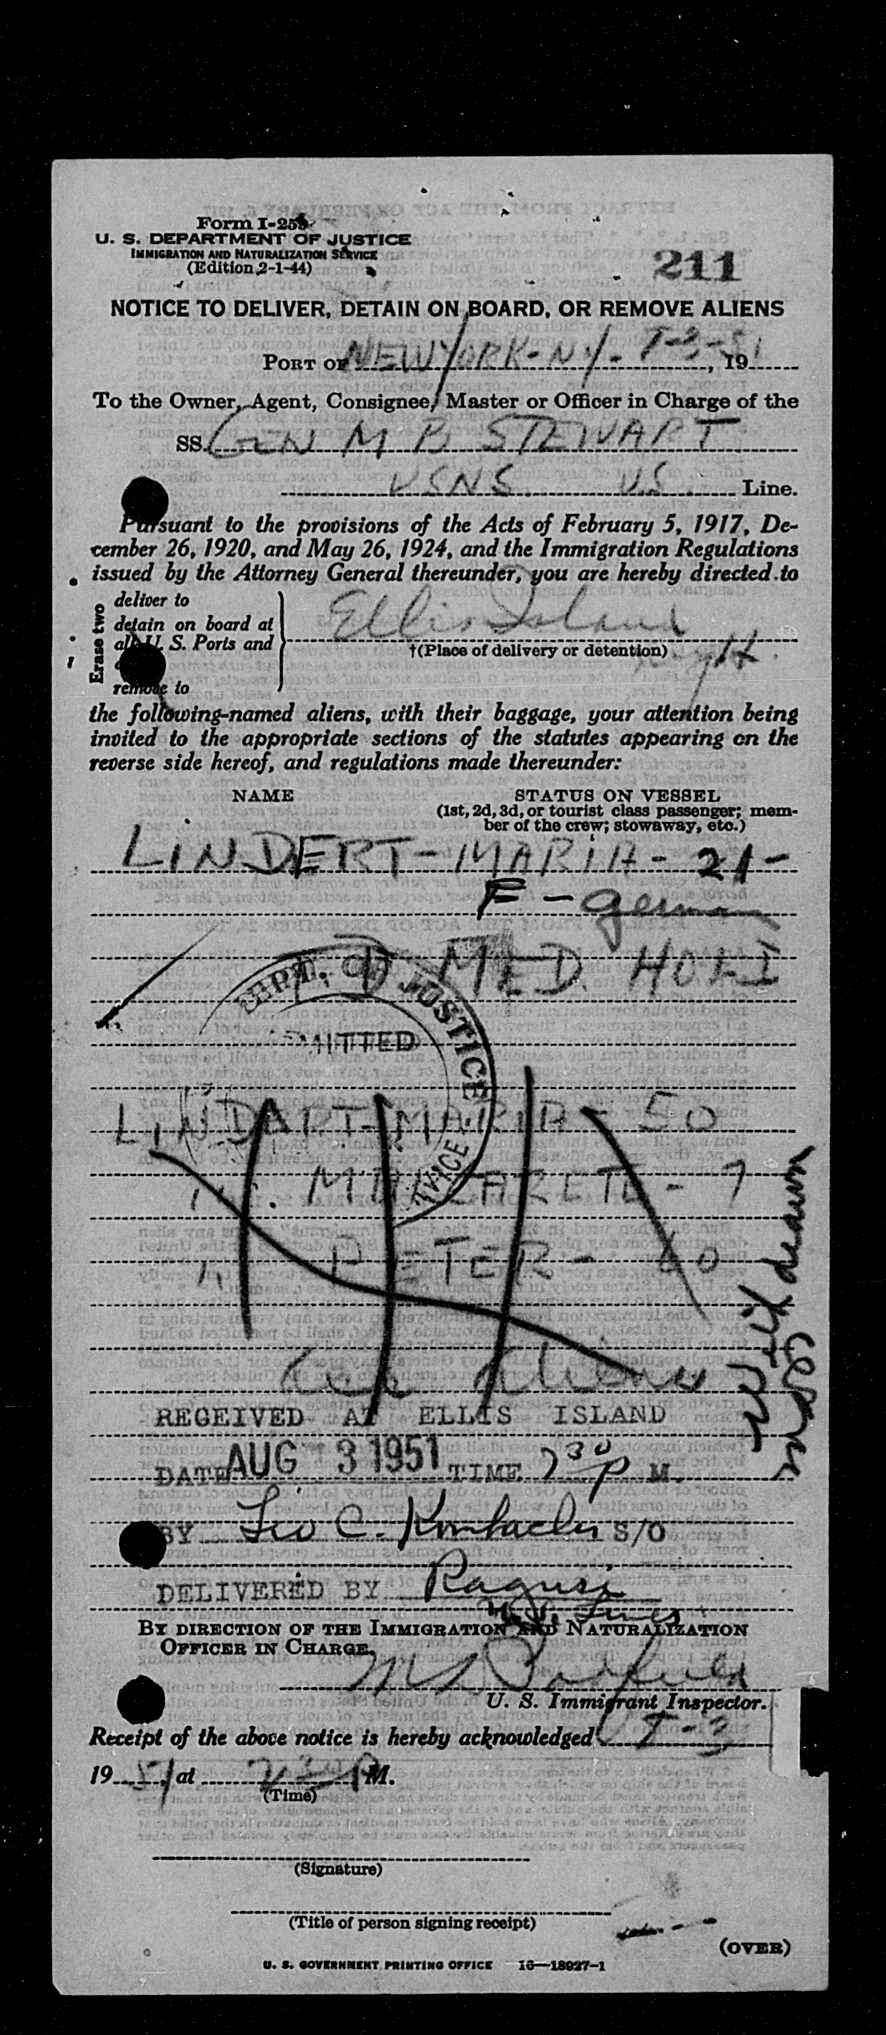 Form I-259
U. S. DEPARTMENT OF JUSTICE
IMMIGRATION AND NATURALIZATION SERVICE
(Edition 2-1-44)
211
NOTICE TO DELIVER, DETAIN ON BOARD, OR REMOVE ALIENS
PORT OF NEW YORK-NY-8-3-51, 19
To the Owner, Agent, Consignee, Master or Officer in Charge of the
SS. GEN M B STEWART
USNS U.S. Line.
Pursuant to the provisions of the Acts of February 5, 1917, De-
cember 26, 1920, and May 26, 1924, and the Immigration Regulations
issued by the Attorney General thereunder, you are hereby directed to
Erase two
deliver to
detain on board at
all U. S. Ports and
remove to
Ellis Island
†(Place of delivery or detention)
the following-named aliens, with their baggage, your attention being
invited to the appropriate sections of the statutes appearing on the
reverse side hereof, and regulations made thereunder:
NAME STATUS ON VESSEL
(1st, 2d, 3d, or tourist class passenger; mem-
ber of the crew; stowaway, etc.)
LINDERT-MARIA-21-
F-German
MED HOLD
DEPT. OF JUSTICE
ADMITTED
SERVICE
LINDART-MARIA-50
" MARGARETE-7
" PETER-60
acc aliens
Withdrawn
RECEIVED AT ELLIS ISLAND
DATE AUG 3 1951 TIME 730 P M.
BY Leo C. S/O
DELIVERED BY Ragusi
BY DIRECTION OF THE IMMIGRATION AND NATURALIZATION
OFFICER IN CHARGE.
U. S. Immigrant Inspector.
Receipt of the above notice is hereby acknowledged 8-3
1951, at 230 P M.
(Time)
(Signature)
(Title of person signing receipt)
(OVER)
U. S. GOVERNMENT PRINTING OFFICE 16—18927-1